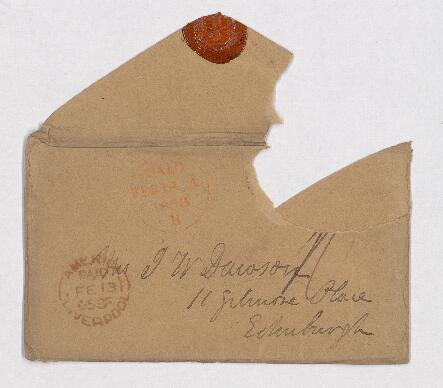 PAID
FEB 13
1858
AMERICA
PAID
FE 13
58
LIVERPOOL
Mrs J W Dawson
11 Gilmore Place
Edinburgh